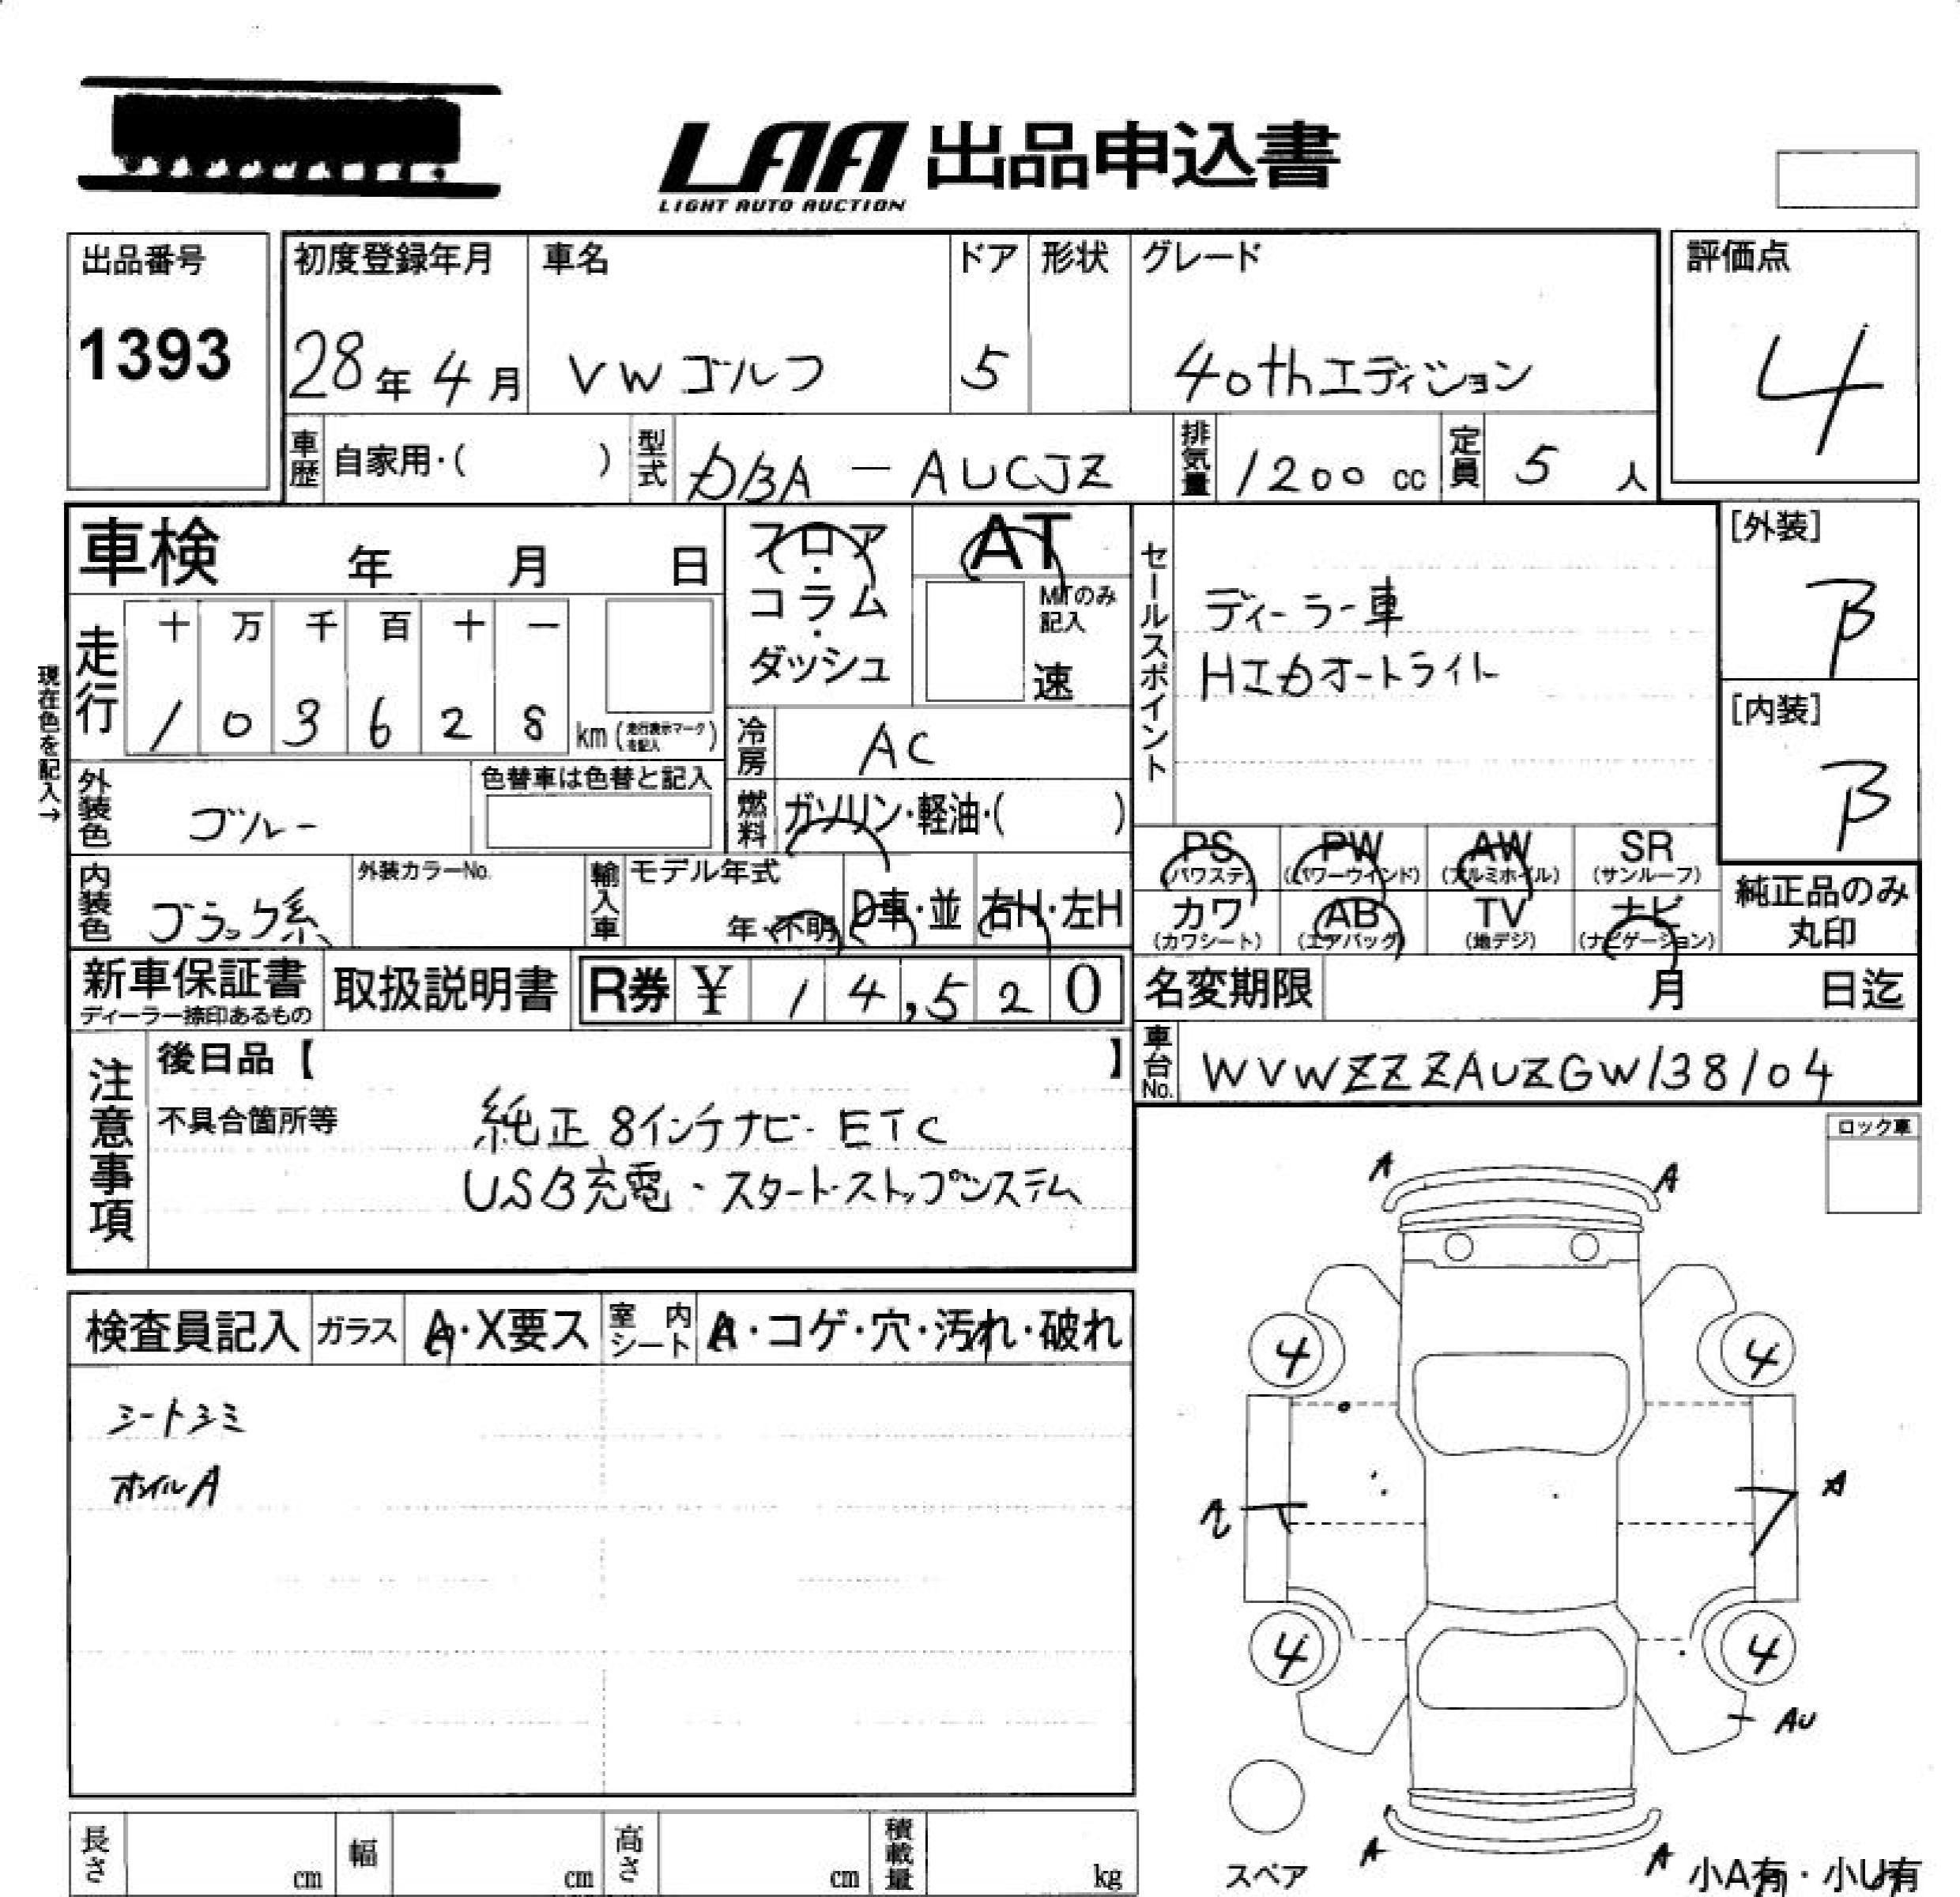 LAA 出品申込書
LIGHT AUTO AUCTION
出品番号
1393
初度登録年月
28年4月
車名
VW ゴルフ
ドア
5
形状
グレード
40thエディション
評価点
4
車歴 自家用・( )
型式 DBA - AUCJZ
排気量 1200 cc
定員 5 人
車検 年 月 日
フロア・コラム・ダッシュ
AT
MTのみ記入
速
セールスポイント
ディーラー車
HIDオートライト
[外装]
B
[内装]
B
現在色を記入→
走行
十 万 千 百 十 一
1 0 3 6 2 8 km (走行表示マークを記入)
冷房 AC
外装色
色替車は色替と記入
燃料 ガソリン・軽油・( )
PS (パワステ)
PW (パワーウインド)
AW (アルミホイル)
SR (サンルーフ)
内装色 ブラック系
外装カラーNo.
輸入車
モデル年式
年・不明
D車・並
右H・左H
カワ (カワシート)
AB (エアバッグ)
TV (地デジ)
ナビ (ナビゲーション)
純正品のみ丸印
新車保証書
ディーラー捺印あるもの
取扱説明書
R券 ¥ 14,520
名変期限 月 日迄
車台No. WVWZZZAUZGW138104
注意事項
後日品【 】
不具合箇所等
純正 8インチナビ・ETC
USB充電・スタートストップシステム
ロック車
検査員記入
ガラス A・X要ス
室内シート A・コゲ・穴・汚れ・破れ
シートシミ
ホイルA
A A
4 4
A
4 4
AU
A A
スペア
小A有・小U有
長さ cm
幅 cm
高さ cm
積載量 kg